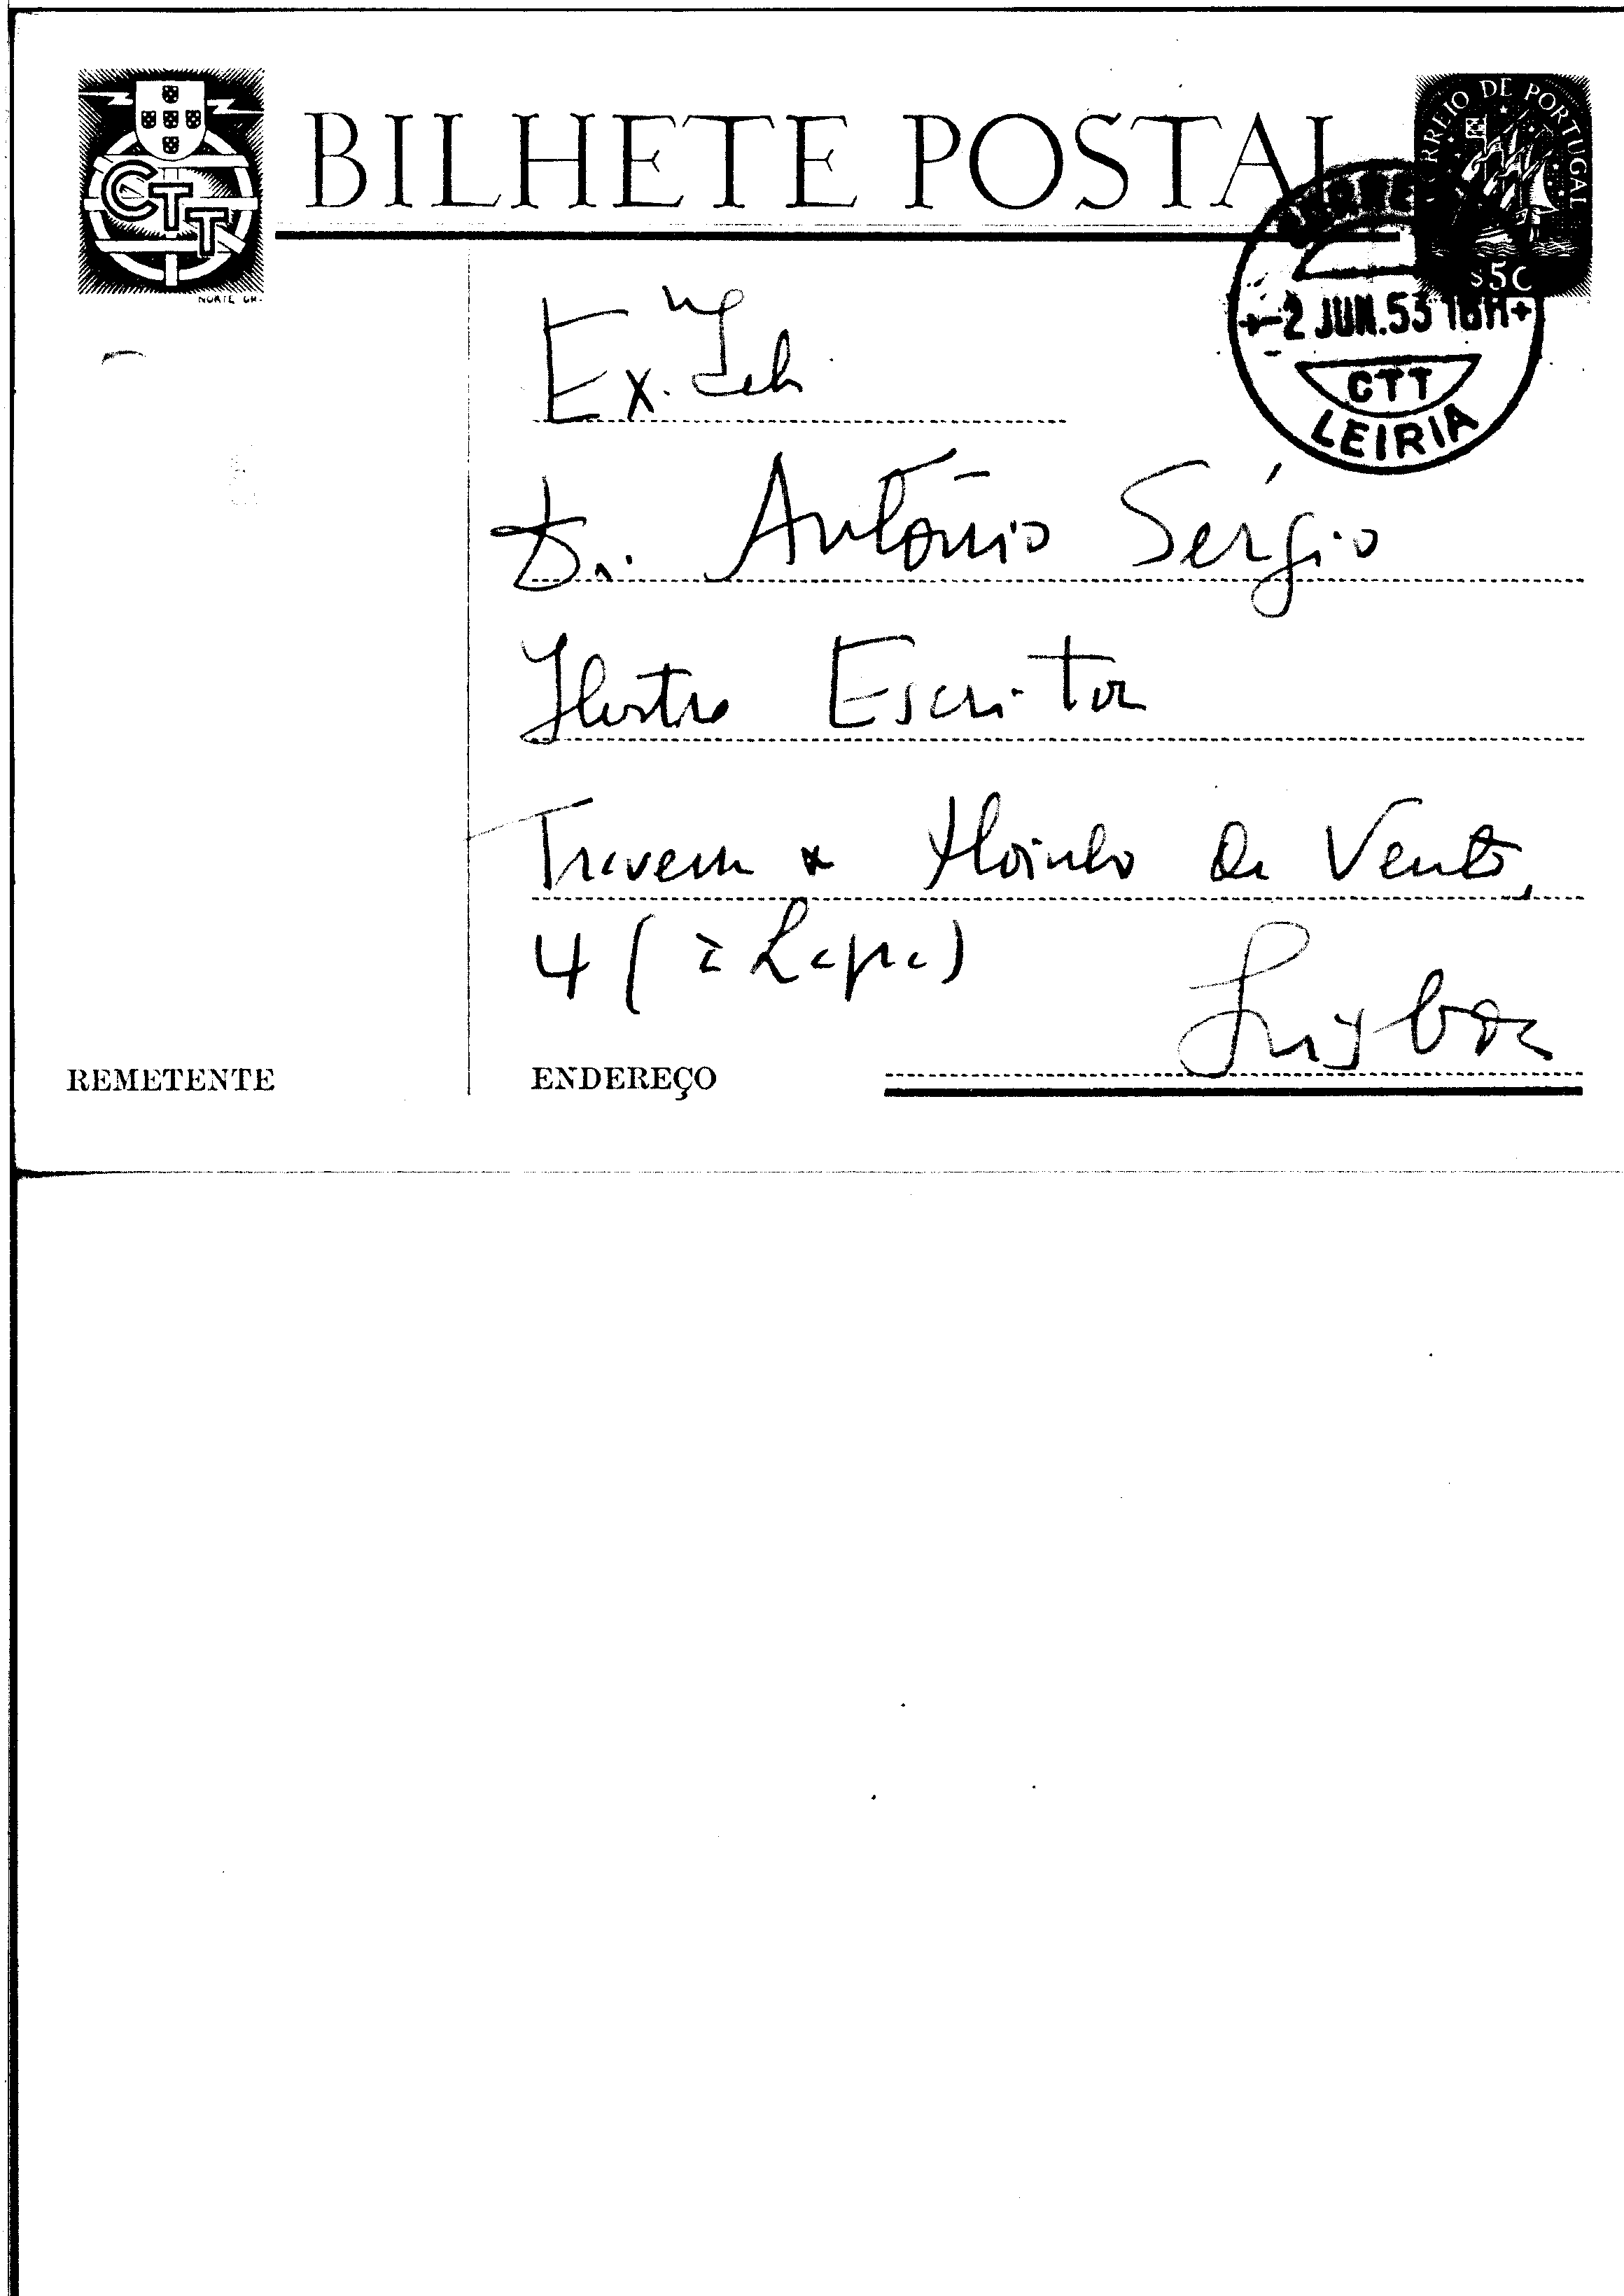 CTT
BILHETE POSTAL
CORREIO DE PORTUGAL
$50
NORTE GR.
CORREIOS
-2 JUN.53 18H
CTT
LEIRIA
Ex.mo Senh
Dr. António Sérgio
Ilustre Escritor
Travessa do Moinho de Vento,
4 (à Lapa)
Lisboa
REMETENTE
ENDEREÇO